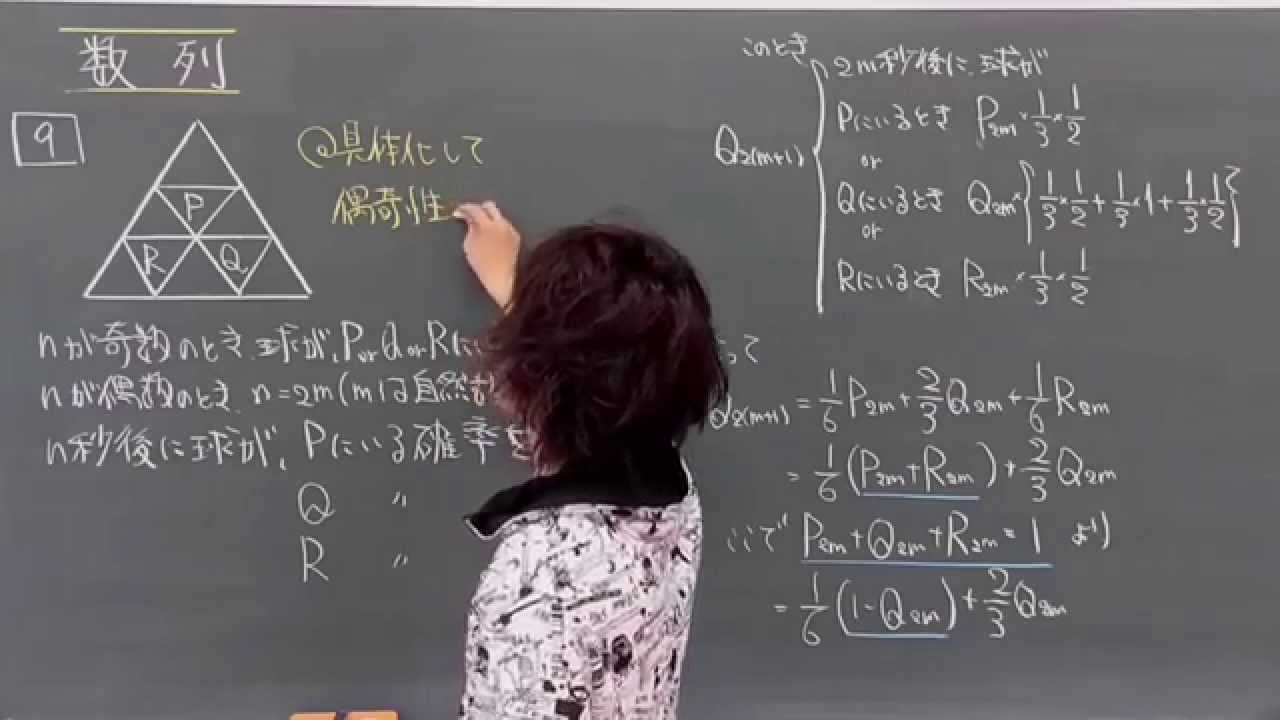 数列
9
P
R Q
@具体化して
偶奇性
nが奇数のとき、球が、P or Q or Rに
nが偶数のとき、n=2m(mは自然
n秒後に球が、Pにいる確率を
Q 〃
R 〃
このとき
2m秒後に、球が
Q2(m+1)
Pにいるとき P2m×1/3×1/2
or
Qにいるとき Q2m×{1/3×1/2+1/3×1+1/3×1/2}
or
Rにいるとき R2m×1/3×1/2
って
Q2(m+1)=1/6P2m+2/3Q2m+1/6R2m
=1/6(P2m+R2m)+2/3Q2m
ここで P2m+Q2m+R2m=1 より
=1/6(1-Q2m)+2/3Q2m